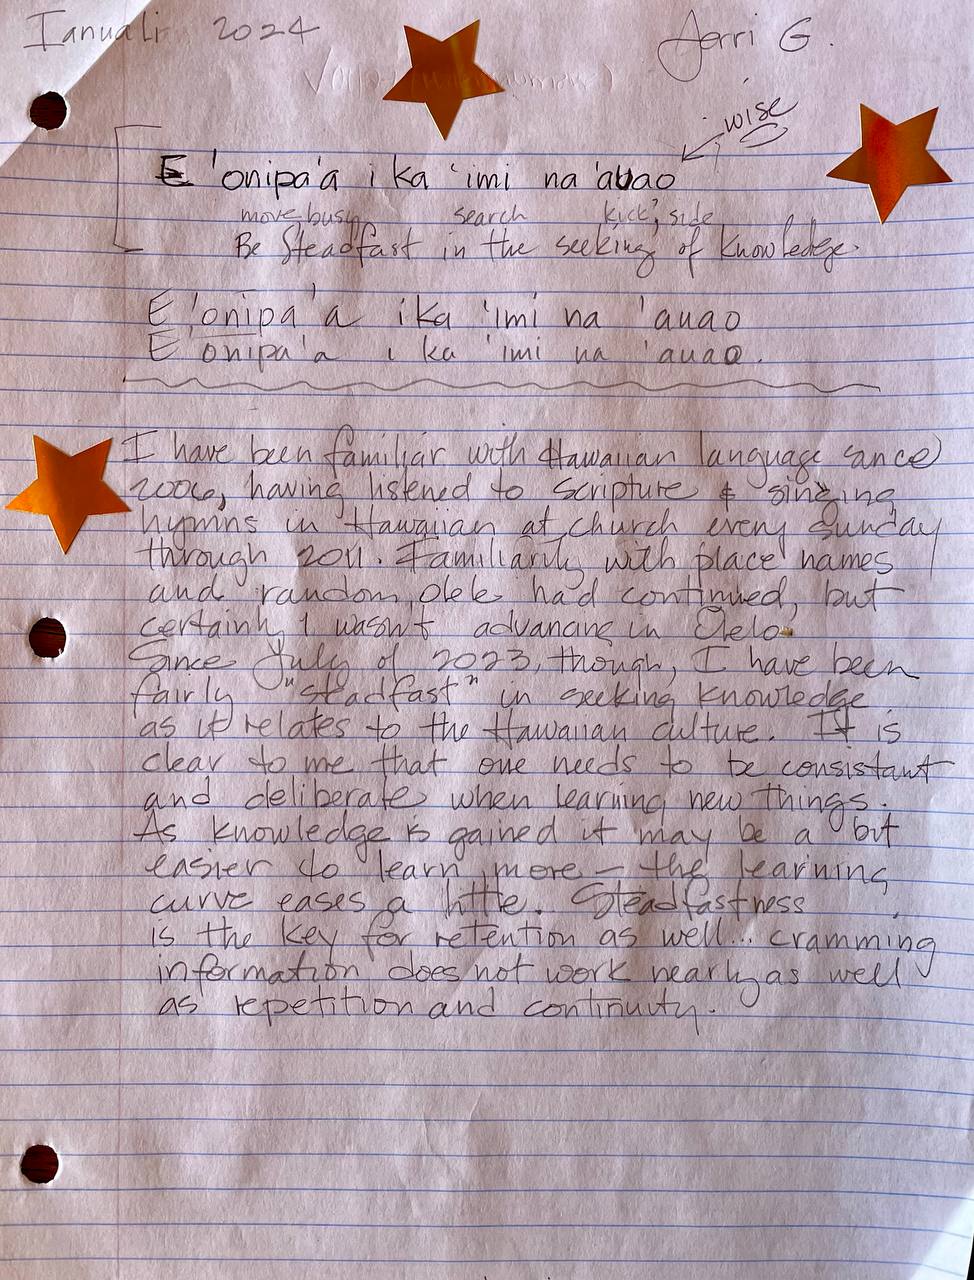 Ianuali 2024 Jerri G.
wise
E 'onipa'a i ka 'imi na 'auao
move, busy search kick, side
Be Steadfast in the seeking of knowledge.
E 'onipa'a i ka 'imi na 'auao
E 'onipa'a i ka 'imi na 'auao.
I have been familiar with Hawaiian language since
2006, having listened to scripture & singing
hymns in Hawaiian at church every Sunday
through 2011. Familiarity with place names
and random olelo had continued, but
certainly I wasn't advancing in Olelo.
Since July of 2023, though, I have been
fairly "steadfast" in seeking knowledge
as it relates to the Hawaiian culture. It is
clear to me that one needs to be consistant
and deliberate when learning new things.
As knowledge is gained it may be a bit
easier to learn more – the learning
curve eases a little. Steadfastness
is the key for retention as well... cramming
information does not work nearly as well
as repetition and continuity.